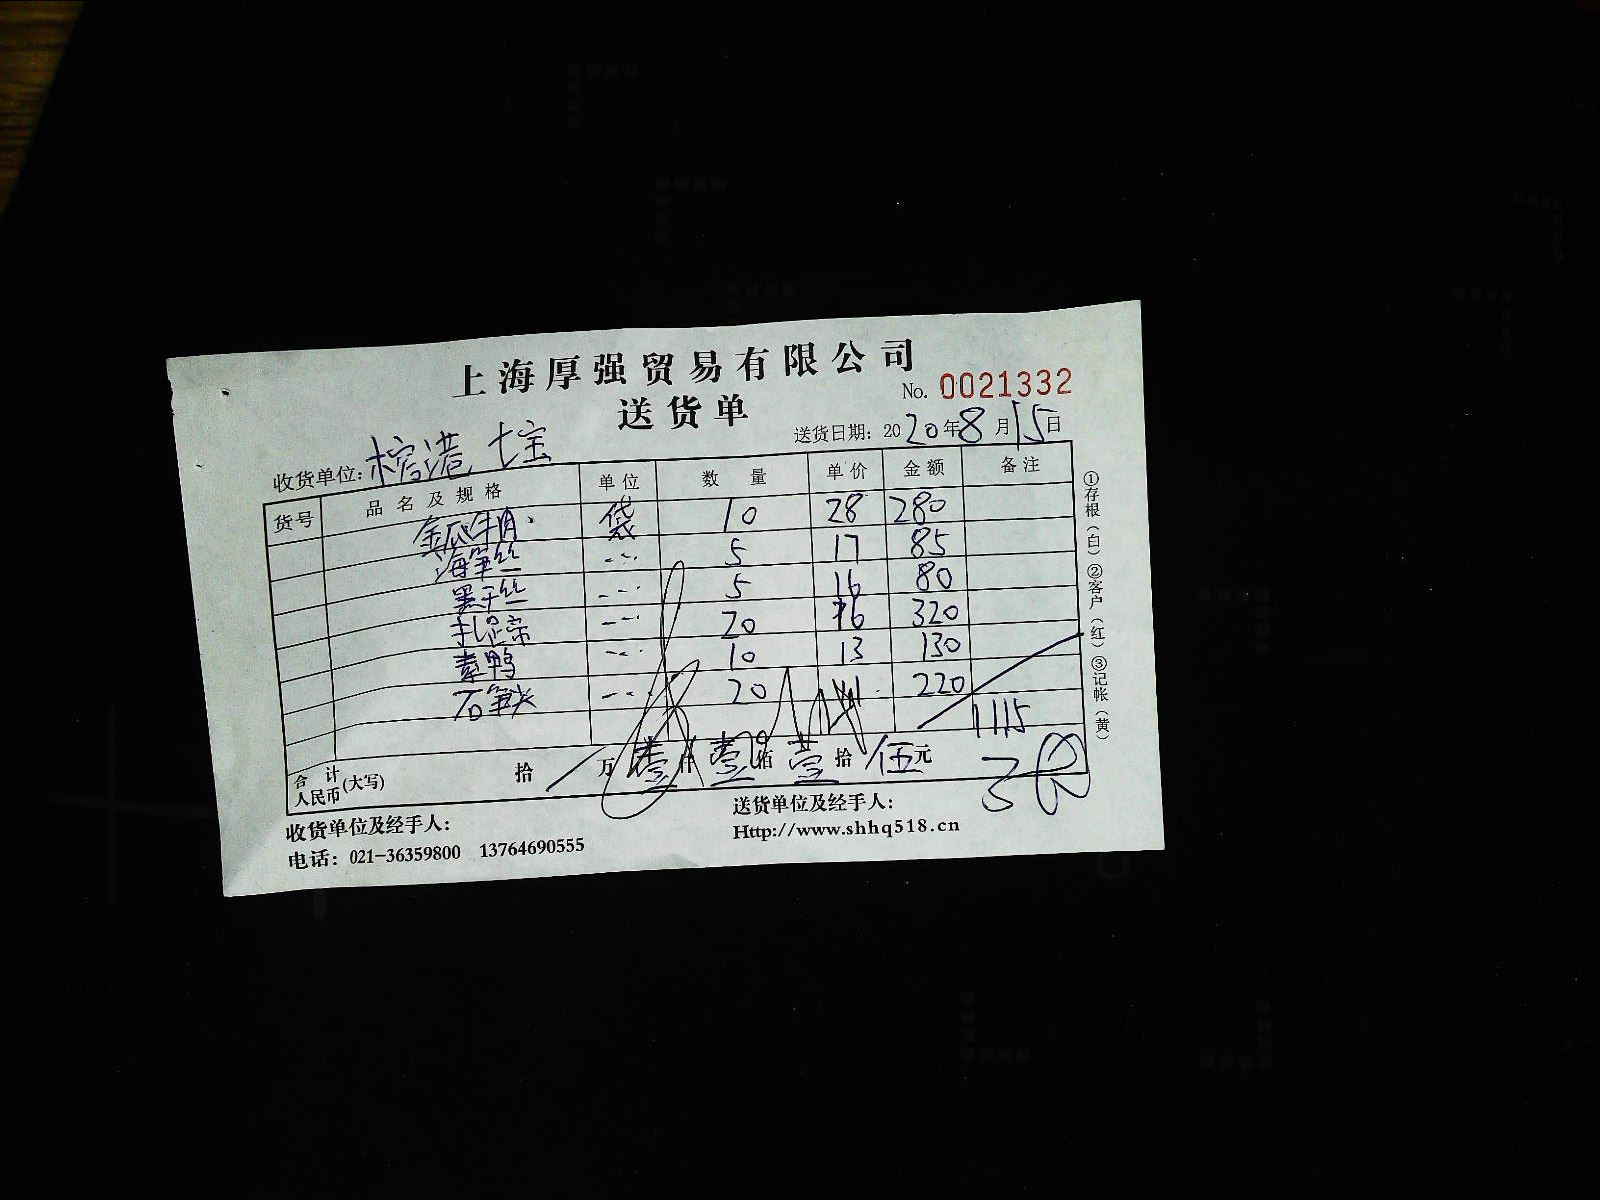 上海厚强贸易有限公司
No. 0021332
送货单
送货日期：2020年8月15日
收货单位：榕港 七宝
货号 品名及规格 单位 数量 单价 金额 备注
金瓜 袋 10 28 280
海笋丝 --- 5 17 85
黑干丝 --- 5 16 80
--- 20 16 320
素鸭 --- 10 13 130
石笋尖 --- 20 220
1115
合计人民币(大写) 拾 万 壹 仟 壹 佰 壹 拾 伍 元
收货单位及经手人：
送货单位及经手人：
电话：021-36359800 13764690555
Http://www.shhq518.cn
①存根（白）②客户（红）③记帐（黄）